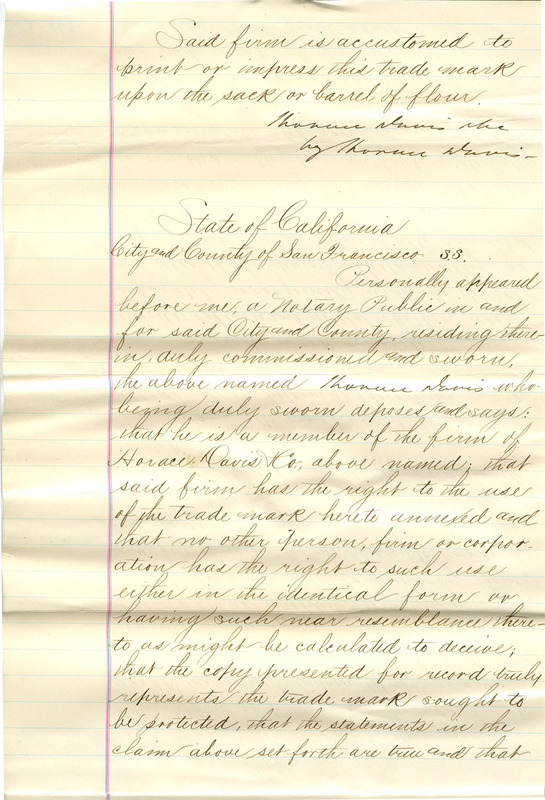 Said firm is accustomed to
print or impress this trade mark
upon the sack or barrel of flour.
Horace Davis & Co
by Horace Davis
State of California
City and County of San Francisco S.S.
Personally appeared
before me, a Notary Public in and
for said City and County, residing there-
in, duly commissioned and sworn,
the above named Horace Davis who
being duly sworn deposes and says:
that he is a member of the firm of
Horace Davis & Co, above named; that
said firm has the right to the use
of the trade mark hereto annexed and
that no other person, firm or corpor-
ation has the right to such use
either in the identical form or
having such near resemblance there-
to as might be calculated to deceive;
that the copy presented for record truly
represents the trade mark sought to
be protected, that the statements in the
claim above set forth are true and that